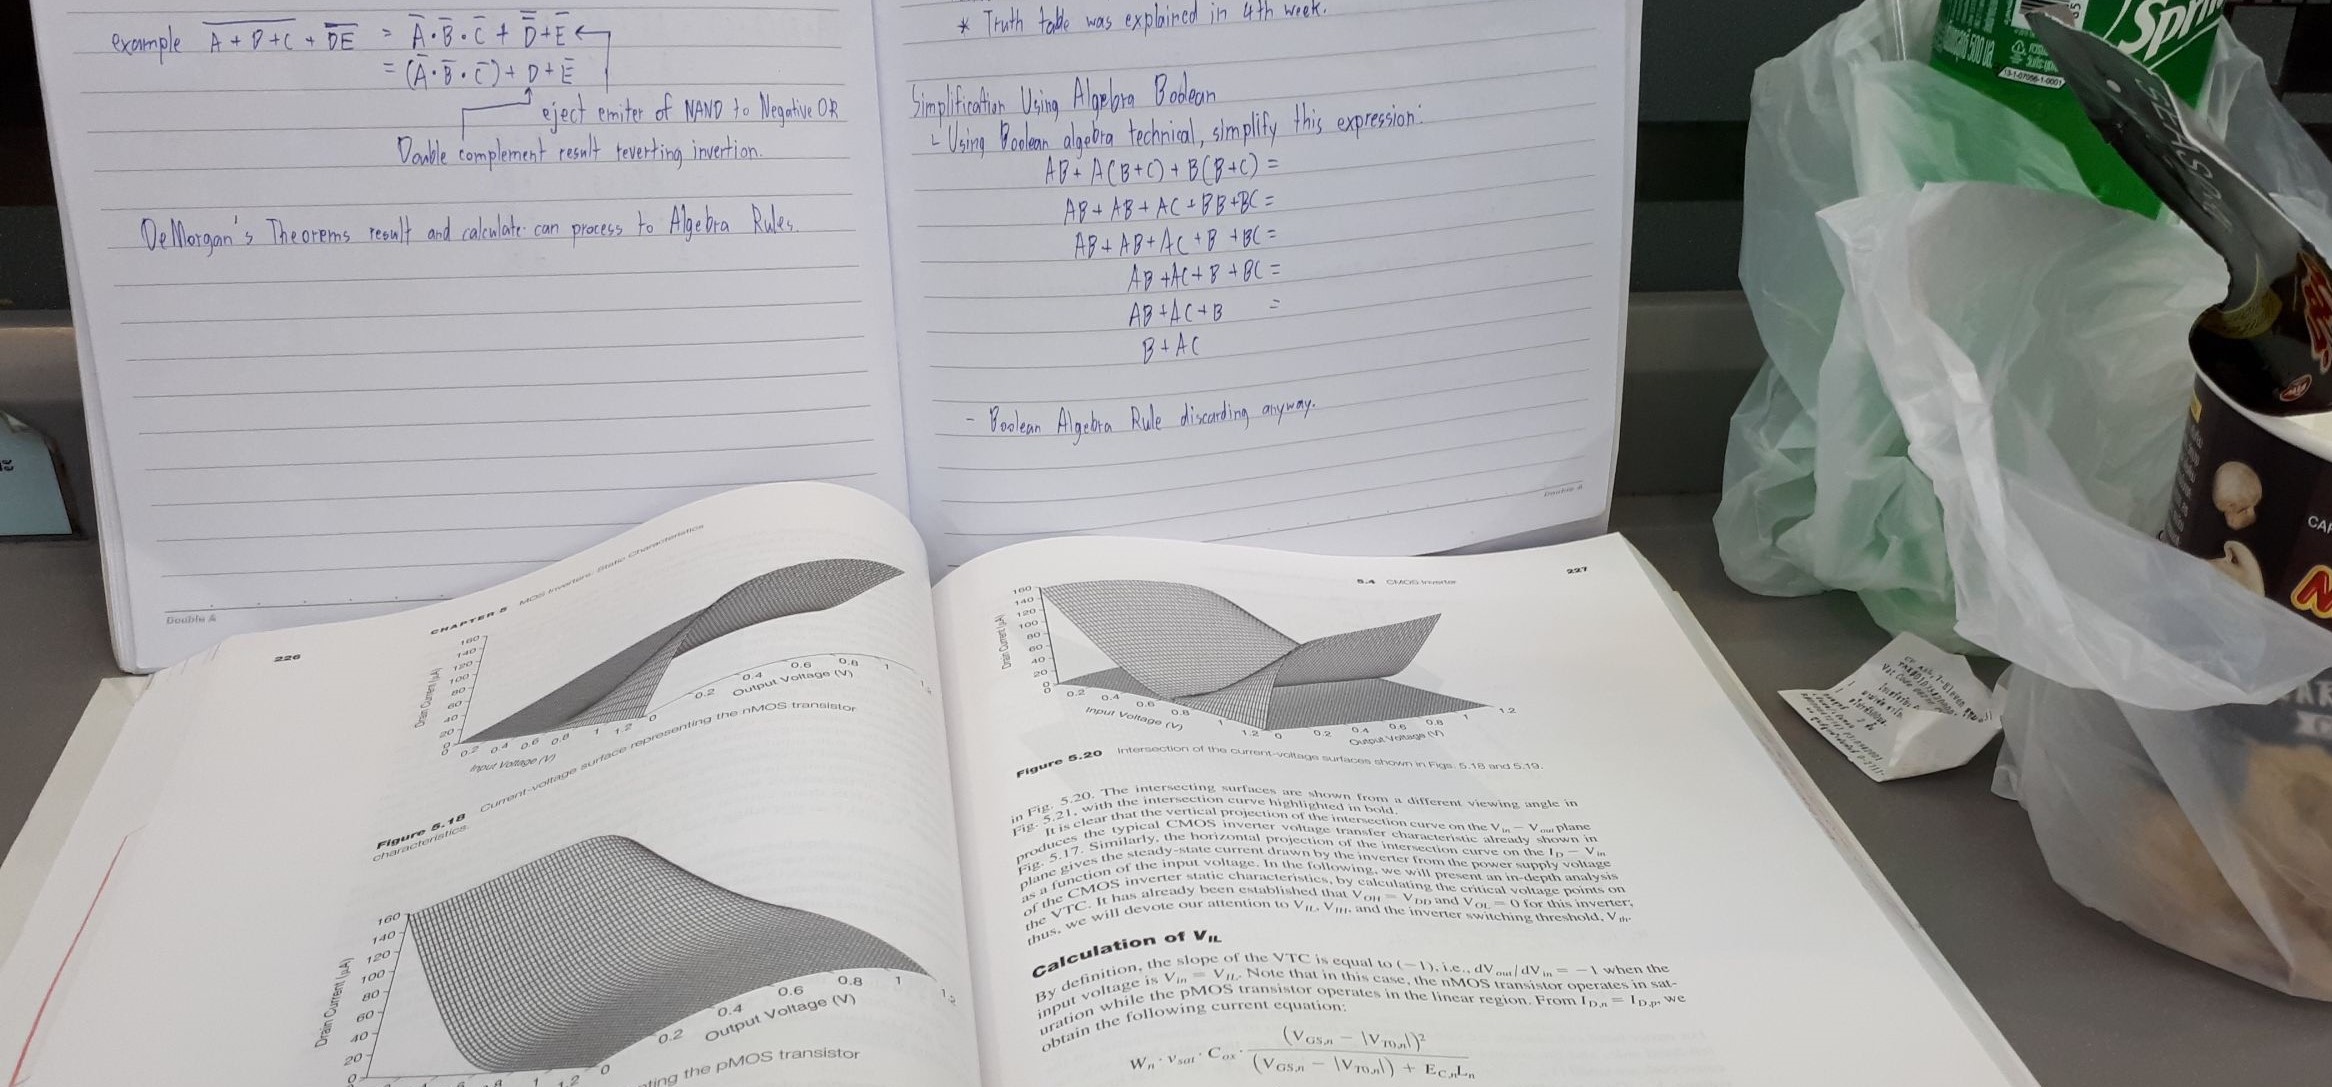 example A + B + C + DE = A̅·B̅·C̅ + D̿+E̅
= (A̅·B̅·C̅) + D + E̅
eject emiter of NAND to Negative OR
Double complement result reverting invertion.
DeMorgan's Theorems result and calculate can process to Algebra Rules.
Double A
* Truth table was explained in 4th week.
Simplification Using Algebra Boolean
Using Boolean algebra technical, simplify this expression:
AB + A(B+C) + B(B+C) =
AB + AB + AC + BB + BC =
AB + AB + AC + B + BC =
AB + AC + B + BC =
AB + AC + B =
B + AC
- Boolean Algebra Rule discarding anyway.
Double A
226
CHAPTER 5 MOS Inverters: Static Characteristics
160
140
120
100
80
60
40
20
0
Drain Current (μA)
0.2 0.4 0.6 0.8 1 1.2
Input Voltage (V)
0 0.2 0.4 0.6 0.8 1
Output Voltage (V)
Figure 5.18 Current-voltage surface representing the nMOS transistor
characteristics.
160
140
120
100
80
60
40
20
0
Drain Current (μA)
1 1.2
0 0.2 0.4 0.6 0.8 1 1.2
Output Voltage (V)
ting the pMOS transistor
5.4 CMOS Inverter
227
160
140
120
100
80
60
40
20
0
Drain Current (μA)
0 0.2 0.4 0.6 0.8 1 1.2
Input Voltage (V)
0 0.2 0.4 0.6 0.8 1 1.2
Output Voltage (V)
Figure 5.20 Intersection of the current-voltage surfaces shown in Figs. 5.18 and 5.19.
in Fig. 5.20. The intersecting surfaces are shown from a different viewing angle in
Fig. 5.21, with the intersection curve highlighted in bold.
It is clear that the vertical projection of the intersection curve on the Vin – Vout plane
produces the typical CMOS inverter voltage transfer characteristic already shown in
Fig. 5.17. Similarly, the horizontal projection of the intersection curve on the ID – Vin
plane gives the steady-state current drawn by the inverter from the power supply voltage
as a function of the input voltage. In the following, we will present an in-depth analysis
of the CMOS inverter static characteristics, by calculating the critical voltage points on
the VTC. It has already been established that VOH = VDD and VOL = 0 for this inverter;
thus, we will devote our attention to VIL, VIH, and the inverter switching threshold, Vth.
Calculation of VIL
By definition, the slope of the VTC is equal to (−1), i.e., dVout/dVin = −1 when the
input voltage is Vin = VIL. Note that in this case, the nMOS transistor operates in sat-
uration while the pMOS transistor operates in the linear region. From ID,n = ID,p, we
obtain the following current equation:
Wn · vsat · Cox · (VGS,n − |VT0,n|)² / (VGS,n − |VT0,n|) + EC,nLn
13-1-07056-1-0001